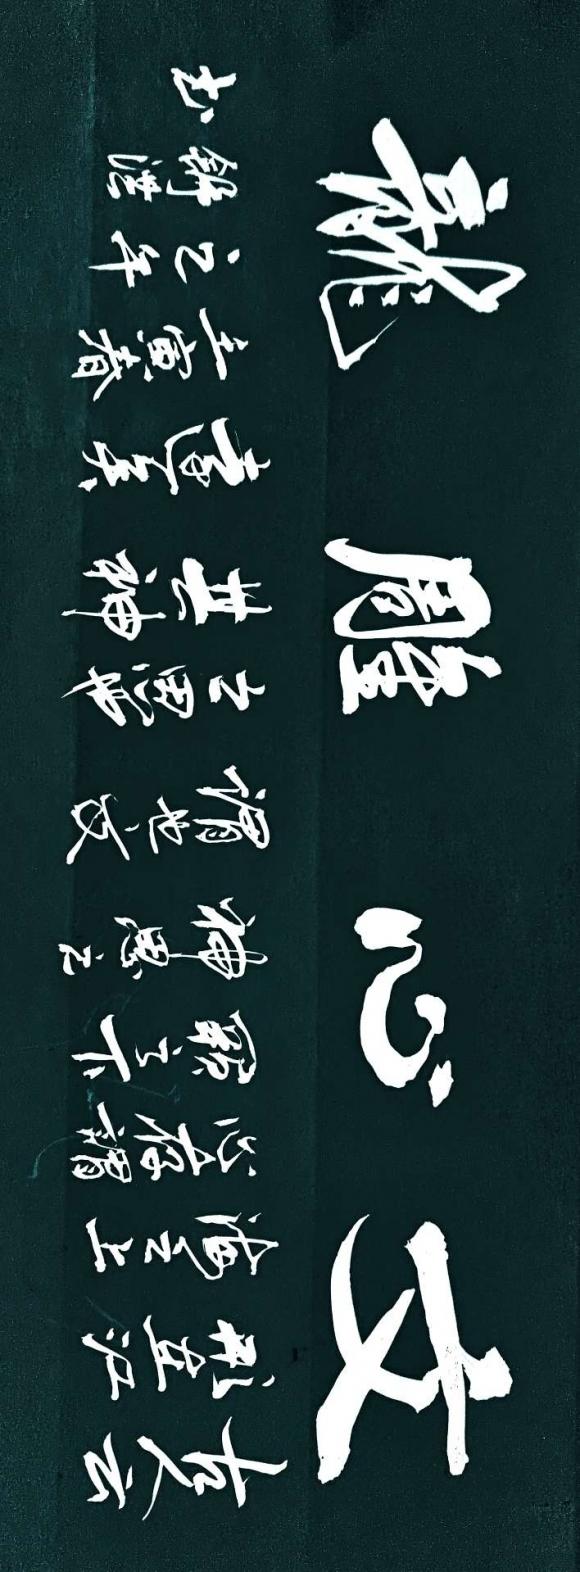 文心雕龍
古人云
形在江
海之上
心存謂
闕之下
神思之
謂也文
之思也
其神
遠矣
壬寅春
之年
书